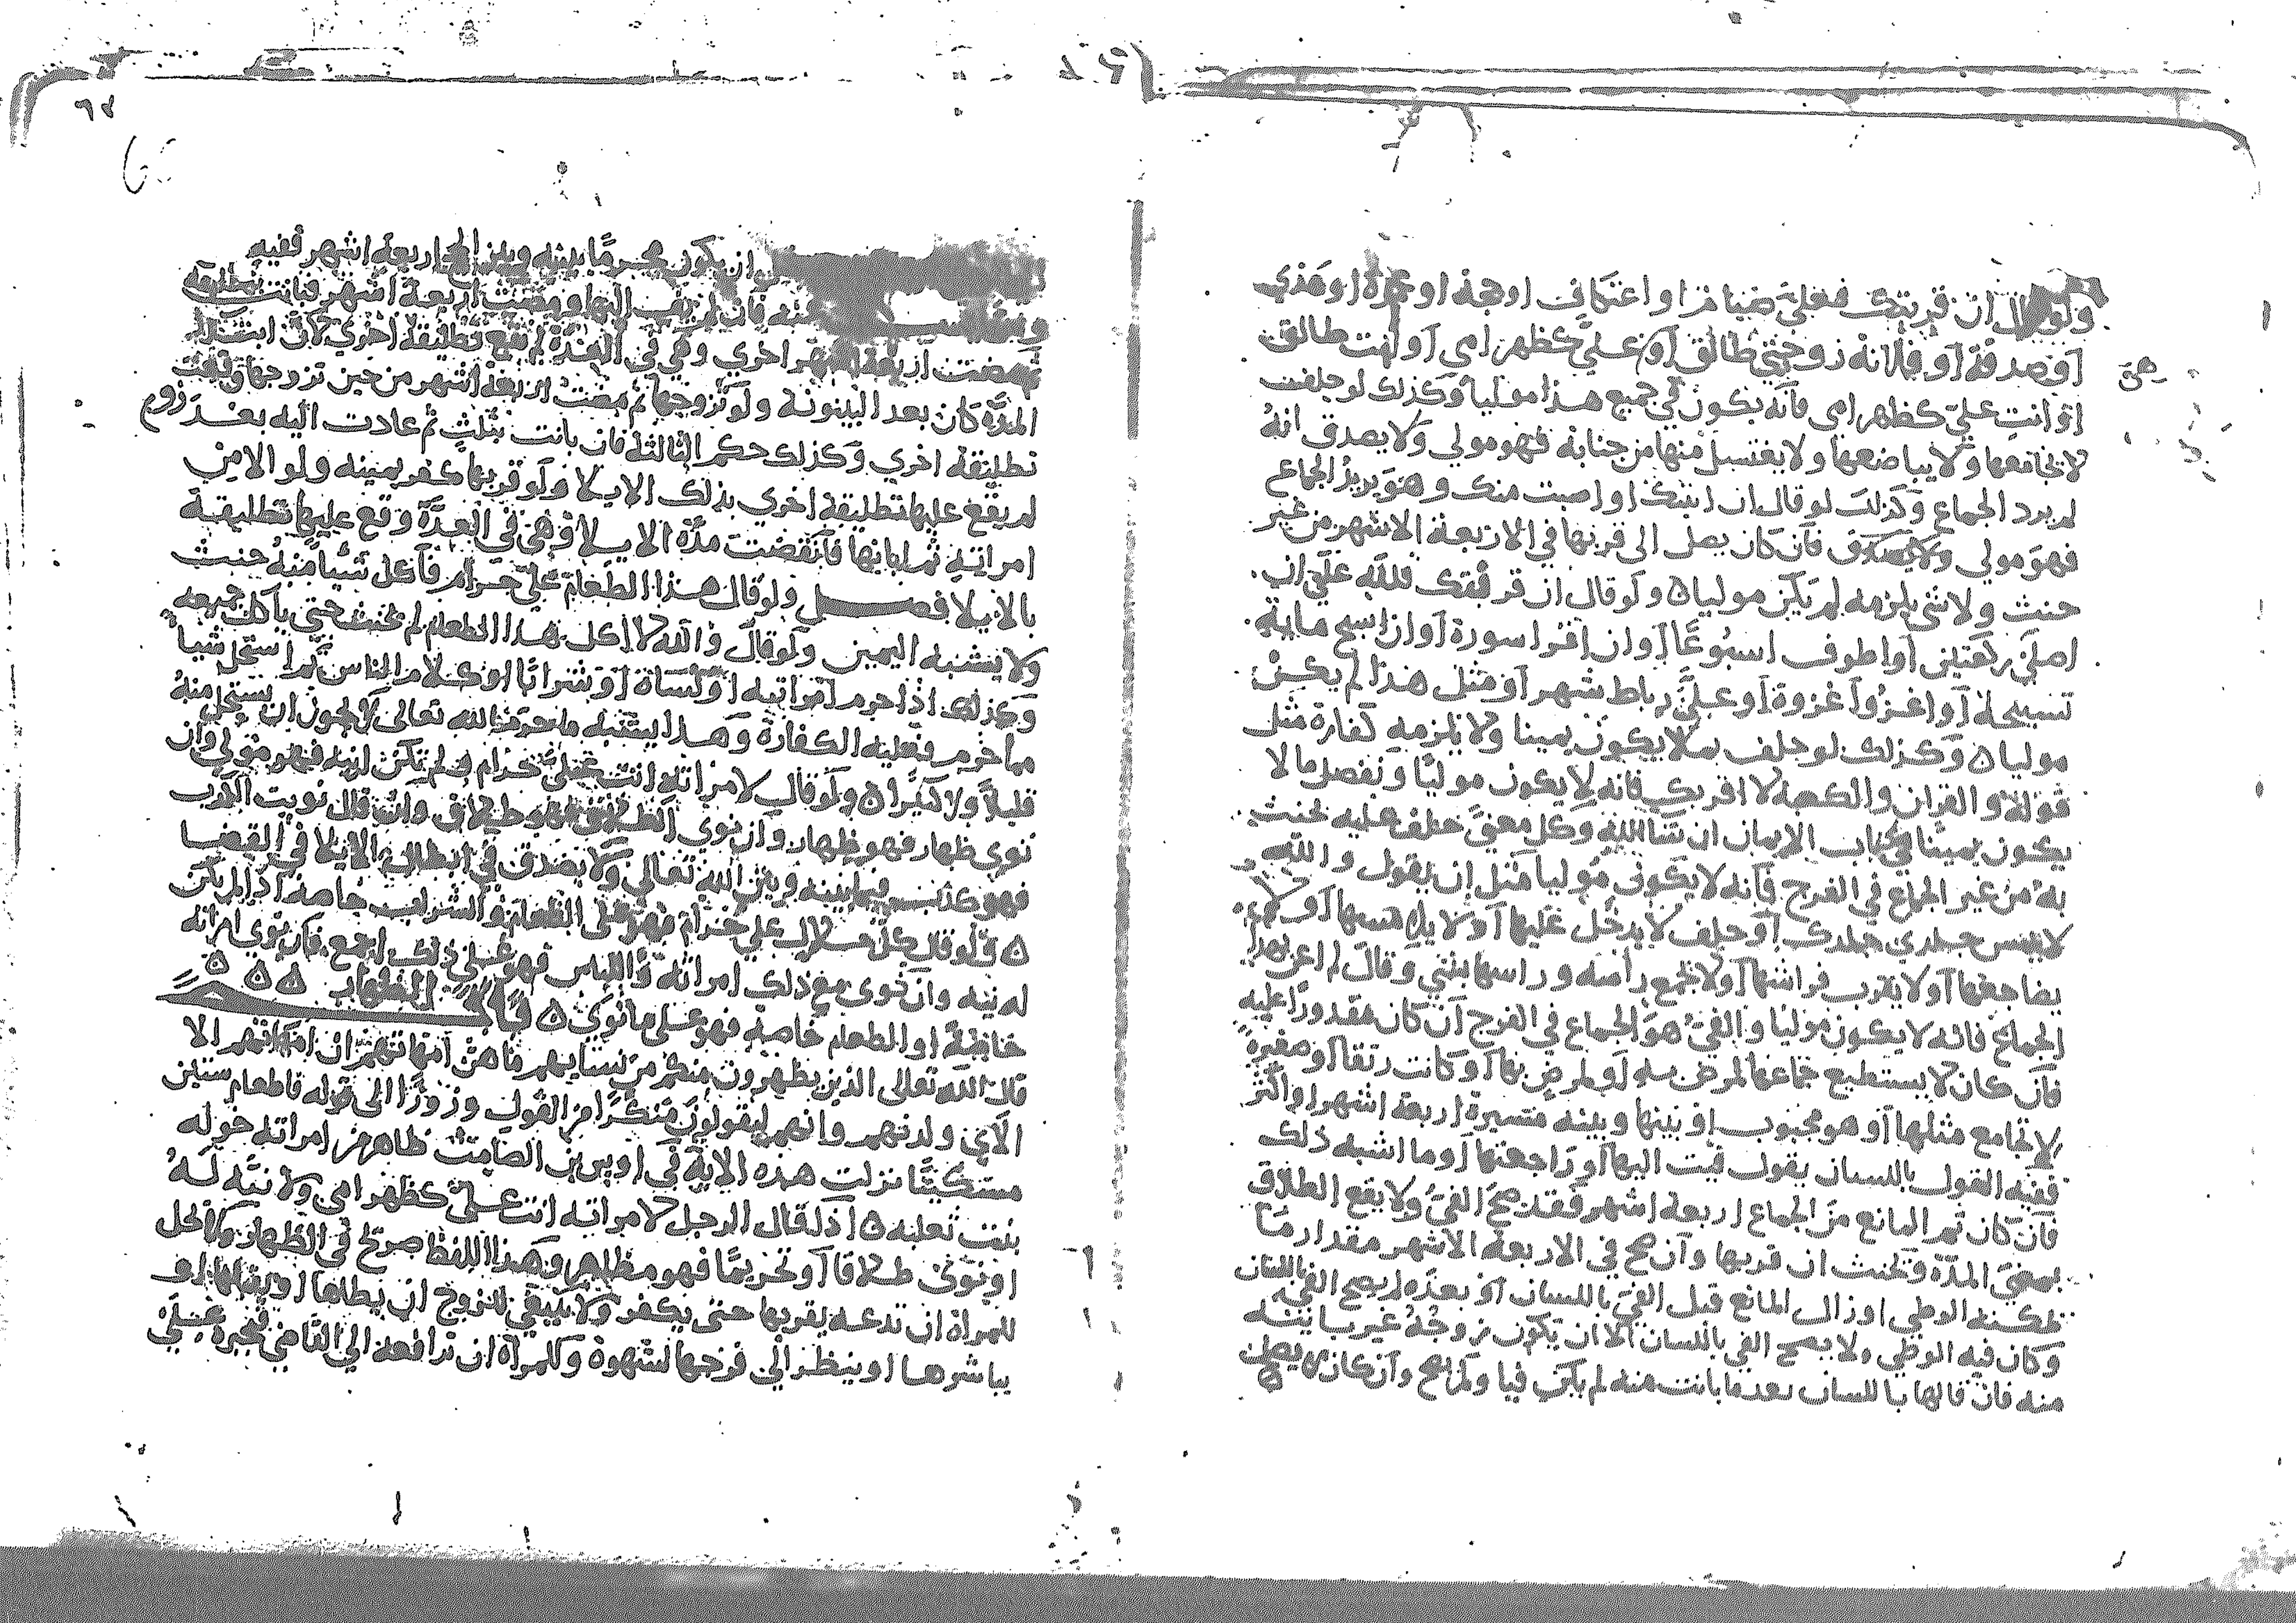 ولو قال ان قربتك فعلي صيام او اعتكاف او حجة او عمرة او هدي
او صدقة او فلانة زوجتي طالق او علي كظهر امي او انت طالق
او انت علي كظهر امي فانه يكون في جميع هذا موليا وكذلك لو حلفت
لا يجامعها ولا يباضعها ولا يغتسل منها من جنابة فهو مولي ولا يصدق انه
لم يرد الجماع وكذلك لو قال ان اتيتك او اصبت منك وهو يريد الجماع
فهو مولي ولا يصدق فان كان يصل الى قربها في الاربعة الاشهر من غير
حنث ولا شي يلزمه لم يكن موليا ه ولو قال ان قربتك فلله علي ان
اصلي ركعتين او اطوف اسبوعا او ان اقرا سورة او ان اسبح ماية
تسبيحة او اغزوا غزوة او علي رباط شهر او مثل هذا لم يكن
موليا ه وكذلك لو حلف بما لا يكون يمينا ولا يلزمه كفارة مثل
قوله والقران والكعبة لا اقربك فانه لا يكون موليا ونفصل ما لا
يكون يمينا في كتاب الايمان ان شا الله وكل معنى حلف عليه يحنث
به من غير الجماع في الفرج فانه لا يكون موليا مثل ان يقول والله
لا يمس جلدي جلدك او حلف لا يدخل عليها او لا يلامسها او لا
يضاجعها او لا يقرب فراشها او لا يجمع راسه وراسها بيتي وقال لم اعن بهذا
الجماع فانه لا يكون موليا والفي هو الجماع في الفرج ان كان مقدورا عليه
فان كان لا يستطيع جماعها لمرض به او لمرض بها او كانت رتقا او صغيرة
لا يجامع مثلها او هو مجبوب او بينها وبينه مسيرة اربعة اشهر او اكثر
ففيه القول باللسان يقول فيت اليها او راجعتها او ما اشبه ذلك
فان كان ثم المانع من الجماع اربعة اشهر فقد صح الفي ولا يقع الطلاق
بمضي المدة ويحنث ان قربها وان صح في الاربعة الاشهر مقدار ما
يمكنه الوطي او زال المانع قبل الفي باللسان او بعده لم يصح الفي باللسان
وكان فيه الوطي ولا يصح الفي باللسان الا ان يكون زوجة غير باينة
منه فان قالها باللسان بعد ما بانت منه لم يكن فيا ولم يصح وان كان يصل
صح
٦٧
ان يكون محرما بينه وبين الحج اربعة اشهر ففيه
منه فان لم يف اليها ومضت اربعة اشهر فبانت بتطليقة
ثم مضت اربعة اشهر اخري وهي في العدة لم تقع تطليقة اخري لان ابتدا
المدة كان بعد البينونة ولو تزوجها ثم مضت اربعة اشهر من حين تزوجها وقعت
تطليقة اخري وكذلك حكم الثالثة فان بانت بثلث ثم عادت اليه بعد زوج
لم يقع عليها تطليقة اخري بذلك الايلا ولو قربها كفر يمينه ولو الا من
امراته ثم ابانها فانقضت مدة الايلا وهي في العدة وقع عليها تطليقة
بالايلا فصل ولو قال هذا الطعام علي حرام فاكل شيا منه حنث
ولا يشبه اليمين ولو قال والله لا اكل هذا الطعام لم يحنث حتى ياكل جميعه
وكذلك اذا حرم امراته او كساة او شرابا او كلام الناس ثم استحل شيا
مما حرم فعليه الكفارة وهذا يشبه ما حرم الله تعالى لا يجوز ان يستحل منه
قليلا ولا كثيرا ه ولو قال لامراته انت علي حرام ولم تكن له نية فهو مولي وان
نوى ظهار فهو ظهار وان نوي الطلاق فهو طلاق وان قال نويت الكذب
فهو كذب فيما بينه وبين الله تعالى ولا يصدق في ابطال الايلا في القضا
ه ولو قال كل حلال علي حرام فهو على الطعام والشراب خاصة اذا لم يكن
له نية وان نوى مع ذلك امراته واللباس فهو على ذلك اجمع فان نوي امراته
خاصة او الطعام خاصة فهو على ما نوى ه باب الظهار ه ه ه
قال الله تعالى الذين يظهرون منكم من نسايهم ما هن امهاتهم ان امهاتهم الا
الاي ولدنهم وانهم ليقولون منكرا من القول وزورا الى قوله فاطعام ستين
مسكينا نزلت هذه الاية في اوس بن الصامت ظاهر من امراته خولة
بنت ثعلبة ه اذا قال الرجل لامراته انت علي كظهر امي ولا نية له
او نوى طلاقا او تحريما فهو مظاهر وهذا اللفظ صريح في الظهار ولا يحل
للمراة ان تدعه يقربها حتى يكفر ولا ينبغي للزوج ان يطاها او يقبلها او
يباشرها او ينظر الى فرجها لشهوة وللمراة ان ترافعه الى القاضي فيجبره على